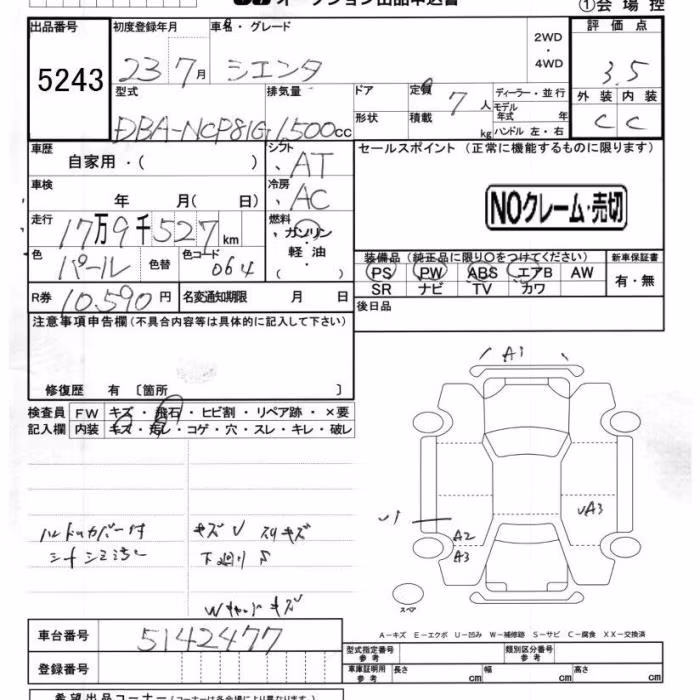 オークション出品申込書
①会場控
出品番号
5243
初度登録年月
23 7月
車名・グレード
シエンタ
2WD
・
4WD
評価点
3.5
外装 内装
C C
型式
DBA-NCP81G
排気量
1500cc
ドア
形状
定員
7人
積載
kg
ディーラー・並行
モデル
年式 年
ハンドル 左・右
車歴
自家用・( )
車検
年 月( 日)
走行
17万9千527km
色
パール
色替
色コード
064
シフト
AT
冷房
AC
燃料
ガソリン
軽油
( )
セールスポイント (正常に機能するものに限ります)
NOクレーム・売切
装備品 (純正品に限り○をつけてください)
PS PW ABS エアB AW
SR ナビ TV カワ
新車保証書
有・無
R券 10,590円
名変通知期限 月 日
後日品
注意事項申告欄 (不具合内容等は具体的に記入して下さい)
修復歴 有 〔箇所 〕
検査員
記入欄
FW キズ・飛石・ヒビ割・リペア跡・×要
内装 キズ・汚レ・コゲ・穴・スレ・キレ・破レ
キズV スリキズ
下廻りS
キズ
A1
A3
A2
A3
スペア
A-キズ E-エクボ U-凹み W-補修跡 S-サビ C-腐食 XX-交換済
車台番号
5142477
登録番号
型式指定番号
参考
類別区分番号
参考
車庫証明用
参考
長さ cm
幅 cm
高さ cm
希望出品コーナー (コーナーは各会場により異なります)